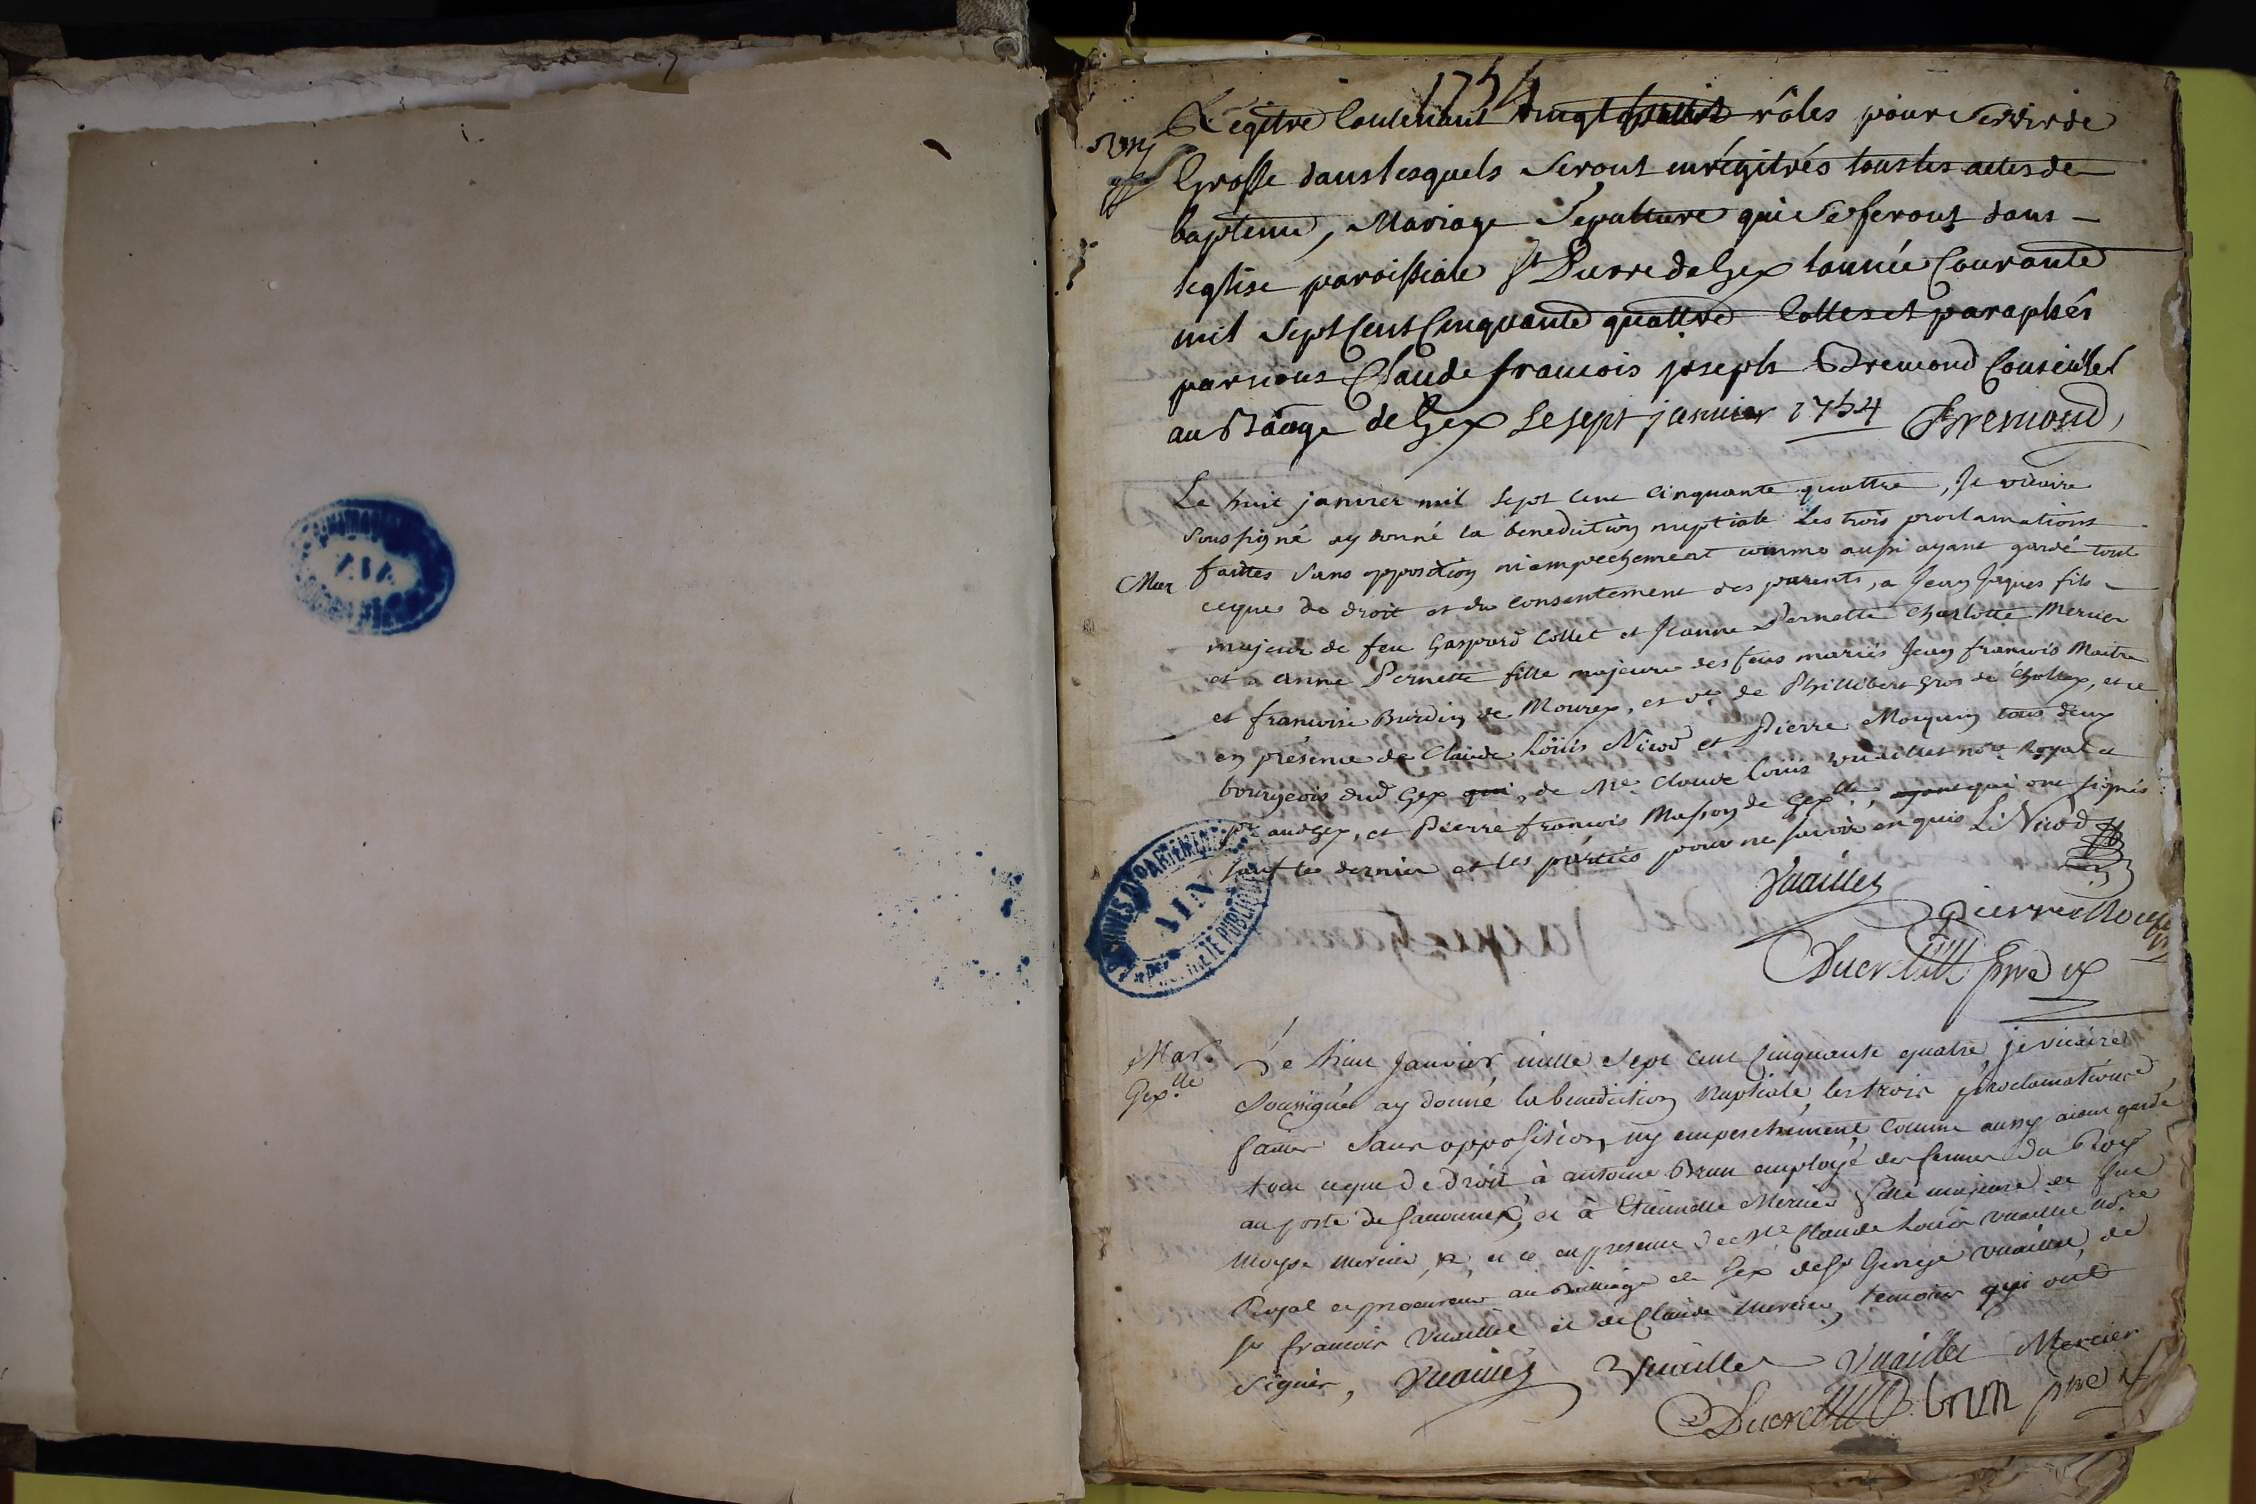 1754
Régitre Contenant vingt rôles pour Servir de
Grosse dans lesquels Seront enrégitrés tous les actes de
baptême, Mariage Sepulture qui Se feront dans
leglise paroissiale St Pierre de Gex lannée Courante
mil Sept Cent Cinquante quattre Cottes et paraphés
par nous Claude francois joseph Bremond Conseiller
au Bâage de Gex le sept janvier 1754 Bremond
Le huit janvier mil Sept Cent Cinquante quattre, Je vicaire
Soussigné ay donné la benediction nuptiale les trois proclamations
Mar faittes Sans opposition ni empechement comme aussi ayant gardé tout
ceque de droit et du consentement des parents, a Jean Jaques fils
majeur de feu Gaspard Collet et Jeanne Pernette Charlotte Mercier
et a Anne Pernette fille majeure des feus mariés Jean francois Maitre
et francoise Burdin de Mourex, et ve de Phillibert Gros de Chollex, et ce
en présence de Claude Loüis Nicod et Pierre Moquin tous deux
bourgeois dud Gex qui, de Me Claude Louis Vuaillet nore Royal et
pr aud Gex, et Pierre francois Masson de Gexlle, ayant qui ont signés
sauf le dernier et les parties pour ne savoir enquis L Nicod
Vuaillet
Pierre
Ducret
AIN
Mar. Le huit Janvier mille Sept cent Cinquante quatre je vicaire
Gexlle Soussigné ay donné la benediction Nuptiale, les trois proclamations
faites Sans opposition, ny empeschement Comme aussy aiant gardé
tout ceque De droit à antoine Brun employé des fermes Du Roy
au poste de Sauvernex, et à Etiennette Mercier fille majeure de feu
Moyse Mercier, & et ce en presence de Me Claude Louis Vuaillet nore
Royal et procureur au Balliage de Gex de Sr George Vuaillet, de
Sr francois Vuaillet et de Claude Mercier, temoins qui ont
Signés, Vuaillet Vuaillet Vuaillet Mercier
Ducret brun